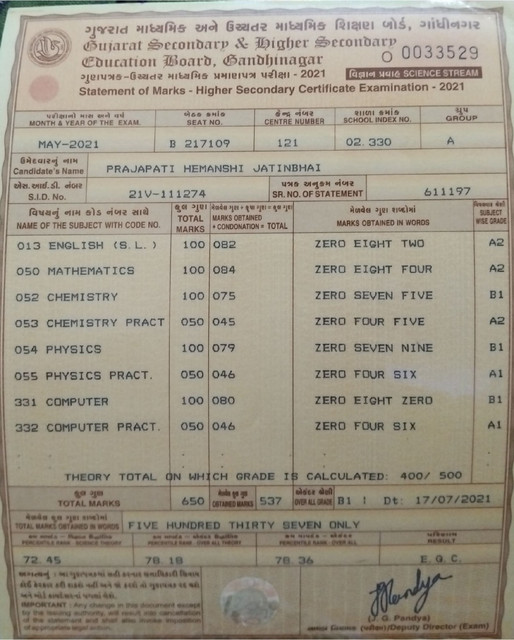 ગુજરાત માધ્યમિક અને ઉચ્ચતર માધ્યમિક શિક્ષણ બોર્ડ, ગાંધીનગર
Gujarat Secondary & Higher Secondary
Education Board, Gandhinagar
O 0033529
ગુણપત્રક-ઉચ્ચતર માધ્યમિક પ્રમાણપત્ર પરીક્ષા - 2021 વિજ્ઞાન પ્રવાહ SCIENCE STREAM
Statement of Marks - Higher Secondary Certificate Examination - 2021
પરીક્ષાનો માસ અને વર્ષ બેઠક ક્રમાંક કેન્દ્ર નંબર શાળા ક્રમાંક ગ્રુપ
MONTH & YEAR OF THE EXAM. SEAT NO. CENTRE NUMBER SCHOOL INDEX NO. GROUP
MAY-2021 B 217109 121 02.330 A
ઉમેદવારનું નામ
Candidate's Name PRAJAPATI HEMANSHI JATINBHAI
એસ.આઈ.ડી. નંબર પત્રક અનુક્રમ નંબર
S.I.D. No. 21V-111274 SR. NO. OF STATEMENT 611197
વિષયનું નામ કોડ નંબર સાથે કુલ ગુણ મેળવેલ ગુણ શબ્દોમાં
NAME OF THE SUBJECT WITH CODE NO. TOTAL MARKS MARKS OBTAINED + CONDONATION = TOTAL MARKS OBTAINED IN WORDS SUBJECT WISE GRADE
013 ENGLISH (S.L.) 100 082 ZERO EIGHT TWO A2
050 MATHEMATICS 100 084 ZERO EIGHT FOUR A2
052 CHEMISTRY 100 075 ZERO SEVEN FIVE B1
053 CHEMISTRY PRACT 050 045 ZERO FOUR FIVE A2
054 PHYSICS 100 079 ZERO SEVEN NINE B1
055 PHYSICS PRACT. 050 046 ZERO FOUR SIX A1
331 COMPUTER 100 080 ZERO EIGHT ZERO B1
332 COMPUTER PRACT. 050 046 ZERO FOUR SIX A1
THEORY TOTAL ON WHICH GRADE IS CALCULATED: 400/ 500
કુલ ગુણ
TOTAL MARKS 650 OBTAINED MARKS 537 OVER ALL GRADE B1 ! Dt: 17/07/2021
મેળવેલ કુલ ગુણ શબ્દોમાં
TOTAL MARKS OBTAINED IN WORDS FIVE HUNDRED THIRTY SEVEN ONLY
PERCENTILE RANK - SCIENCE THEORY PERCENTILE RANK - OVER ALL THEORY PERCENTILE RANK - OVER ALL RESULT
72.45 78.18 78.36 E.Q.C.
IMPORTANT : Any change in this document except
by the issuing authority, will result into cancellation
of the statement and shall also invoke imposition
of appropriate legal action.
(J. G. Pandya)
Deputy Director (Exam)